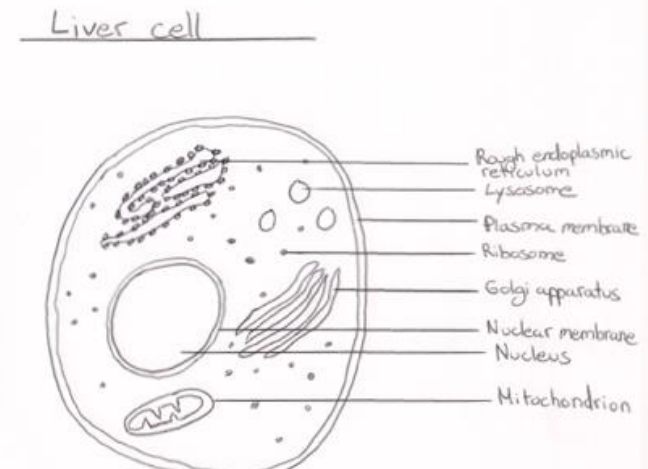 Liver cell
Rough endoplasmic
reticulum
Lysosome
Plasma membrane
Ribosome
Golgi apparatus
Nuclear membrane
Nucleus
Mitochondrion